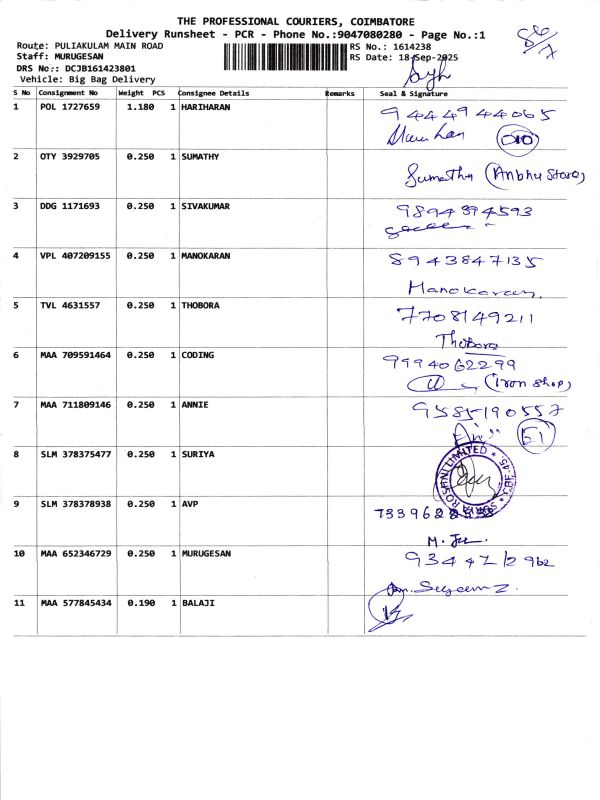 THE PROFESSIONAL COURIERS, COIMBATORE
Delivery Runsheet - PCR - Phone No.:9047080280 - Page No.:1
Route: PULIAKULAM MAIN ROAD
RS No.: 1614238
Staff: MURUGESAN
RS Date: 18-Sep-2025
DRS No.: DCJB161423801
Vehicle: Big Bag Delivery
S No Consignment No Weight PCS Consignee Details Remarks Seal & Signature
1 POL 1727659 1.180 1 HARIHARAN 9444944065
2 OTY 3929705 0.250 1 SUMATHY
Sumathy (Anbhu Store)
3 DDG 1171693 0.250 1 SIVAKUMAR 9894394593
4 VPL 407209155 0.250 1 MANOKARAN 8943847135
Manokaran.
5 TVL 4631557 0.250 1 THOBORA 7708149211
Thobora
6 MAA 709591464 0.250 1 CODING 9994062299
(Iron shop)
7 MAA 711809146 0.250 1 ANNIE 9585190557
8 SLM 378375477 0.250 1 SURIYA
9 SLM 378378938 0.250 1 AVP
10 MAA 652346729 0.250 1 MURUGESAN
11 MAA 577845434 0.190 1 BALAJI